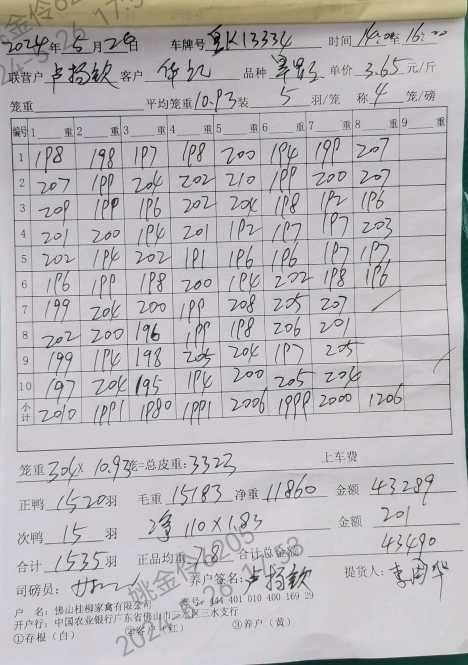 2024年5月29日 车牌号 K13334 时间 14:00至16:00
联营户 卢扬钦 客户 华记 品种 单价 3.65元/斤
笼重 平均笼重10.93装 5 羽/笼 称 4 笼/磅
编号 1 重 2 重 3 重 4 重 5 重 6 重 7 重 8 重 9 重
1 198 198 197 198 200 194 199 207
2 207 199 204 202 210 199 200 207
3 209 199 196 202 204 198 192 196
4 201 200 194 201 192 197 197 203
5 202 194 202 191 196 196 197 197
6 196 199 198 200 194 202 198 196
7 199 204 200 199 208 205 207
8 202 200 196 199 198 206 201
9 199 194 198 205 204 197 205
10 197 204 195 194 200 205 204
小计 2010 1991 1980 1991 2006 1999 2000 1206
笼重 304× 10.93笼=总皮重:3323 上车费
正鸭 1520羽 毛重 15183 净重 11860 金额 43289
次鸭 15 羽 净 110×1.83 金额 201
合计 1535羽 正品均重 7.81 合计总金额 43490
司磅员: 养户签名: 卢扬钦 提货人:
户 名: 佛山桂柳家禽有限公司 账号: 444 401 010 400 169 29
开户行: 中国农业银行广东省佛山市三水区三水支行
①存根(白) ②客户(红) ③养户(黄)
姚金伶6205